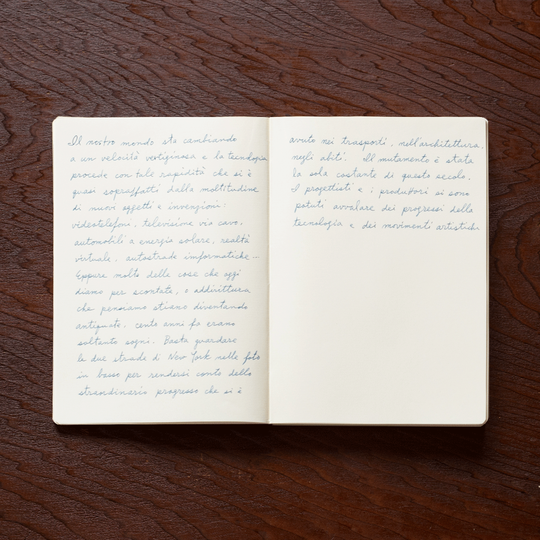 Il nostro mondo sta cambiando
a un velocità vertiginosa e la tecnologia
procede con tale rapidità che si è
quasi sopraffatti dalla moltitudine
di nuovi oggetti e invenzioni:
videotelefono, televisione via cavo,
automobili a energia solare, realtà
virtuale, autostrade informatiche –
Eppure molte delle cose che oggi
diamo per scontate, o addirittura
che pensiamo stiano diventando
antiquate, cento anni fa erano
soltanto sogni. Basta guardare
le due strade di New York nelle foto
in basso per rendersi conto dello
straordinario progresso che si è
avuto nei trasporti, nell'architettura,
negli abiti. Il mutamento è stata
la sola costante di questo secolo.
I progettisti e i produttori si sono
potuti avvalere dei progressi della
tecnologia e dei movimenti artistici